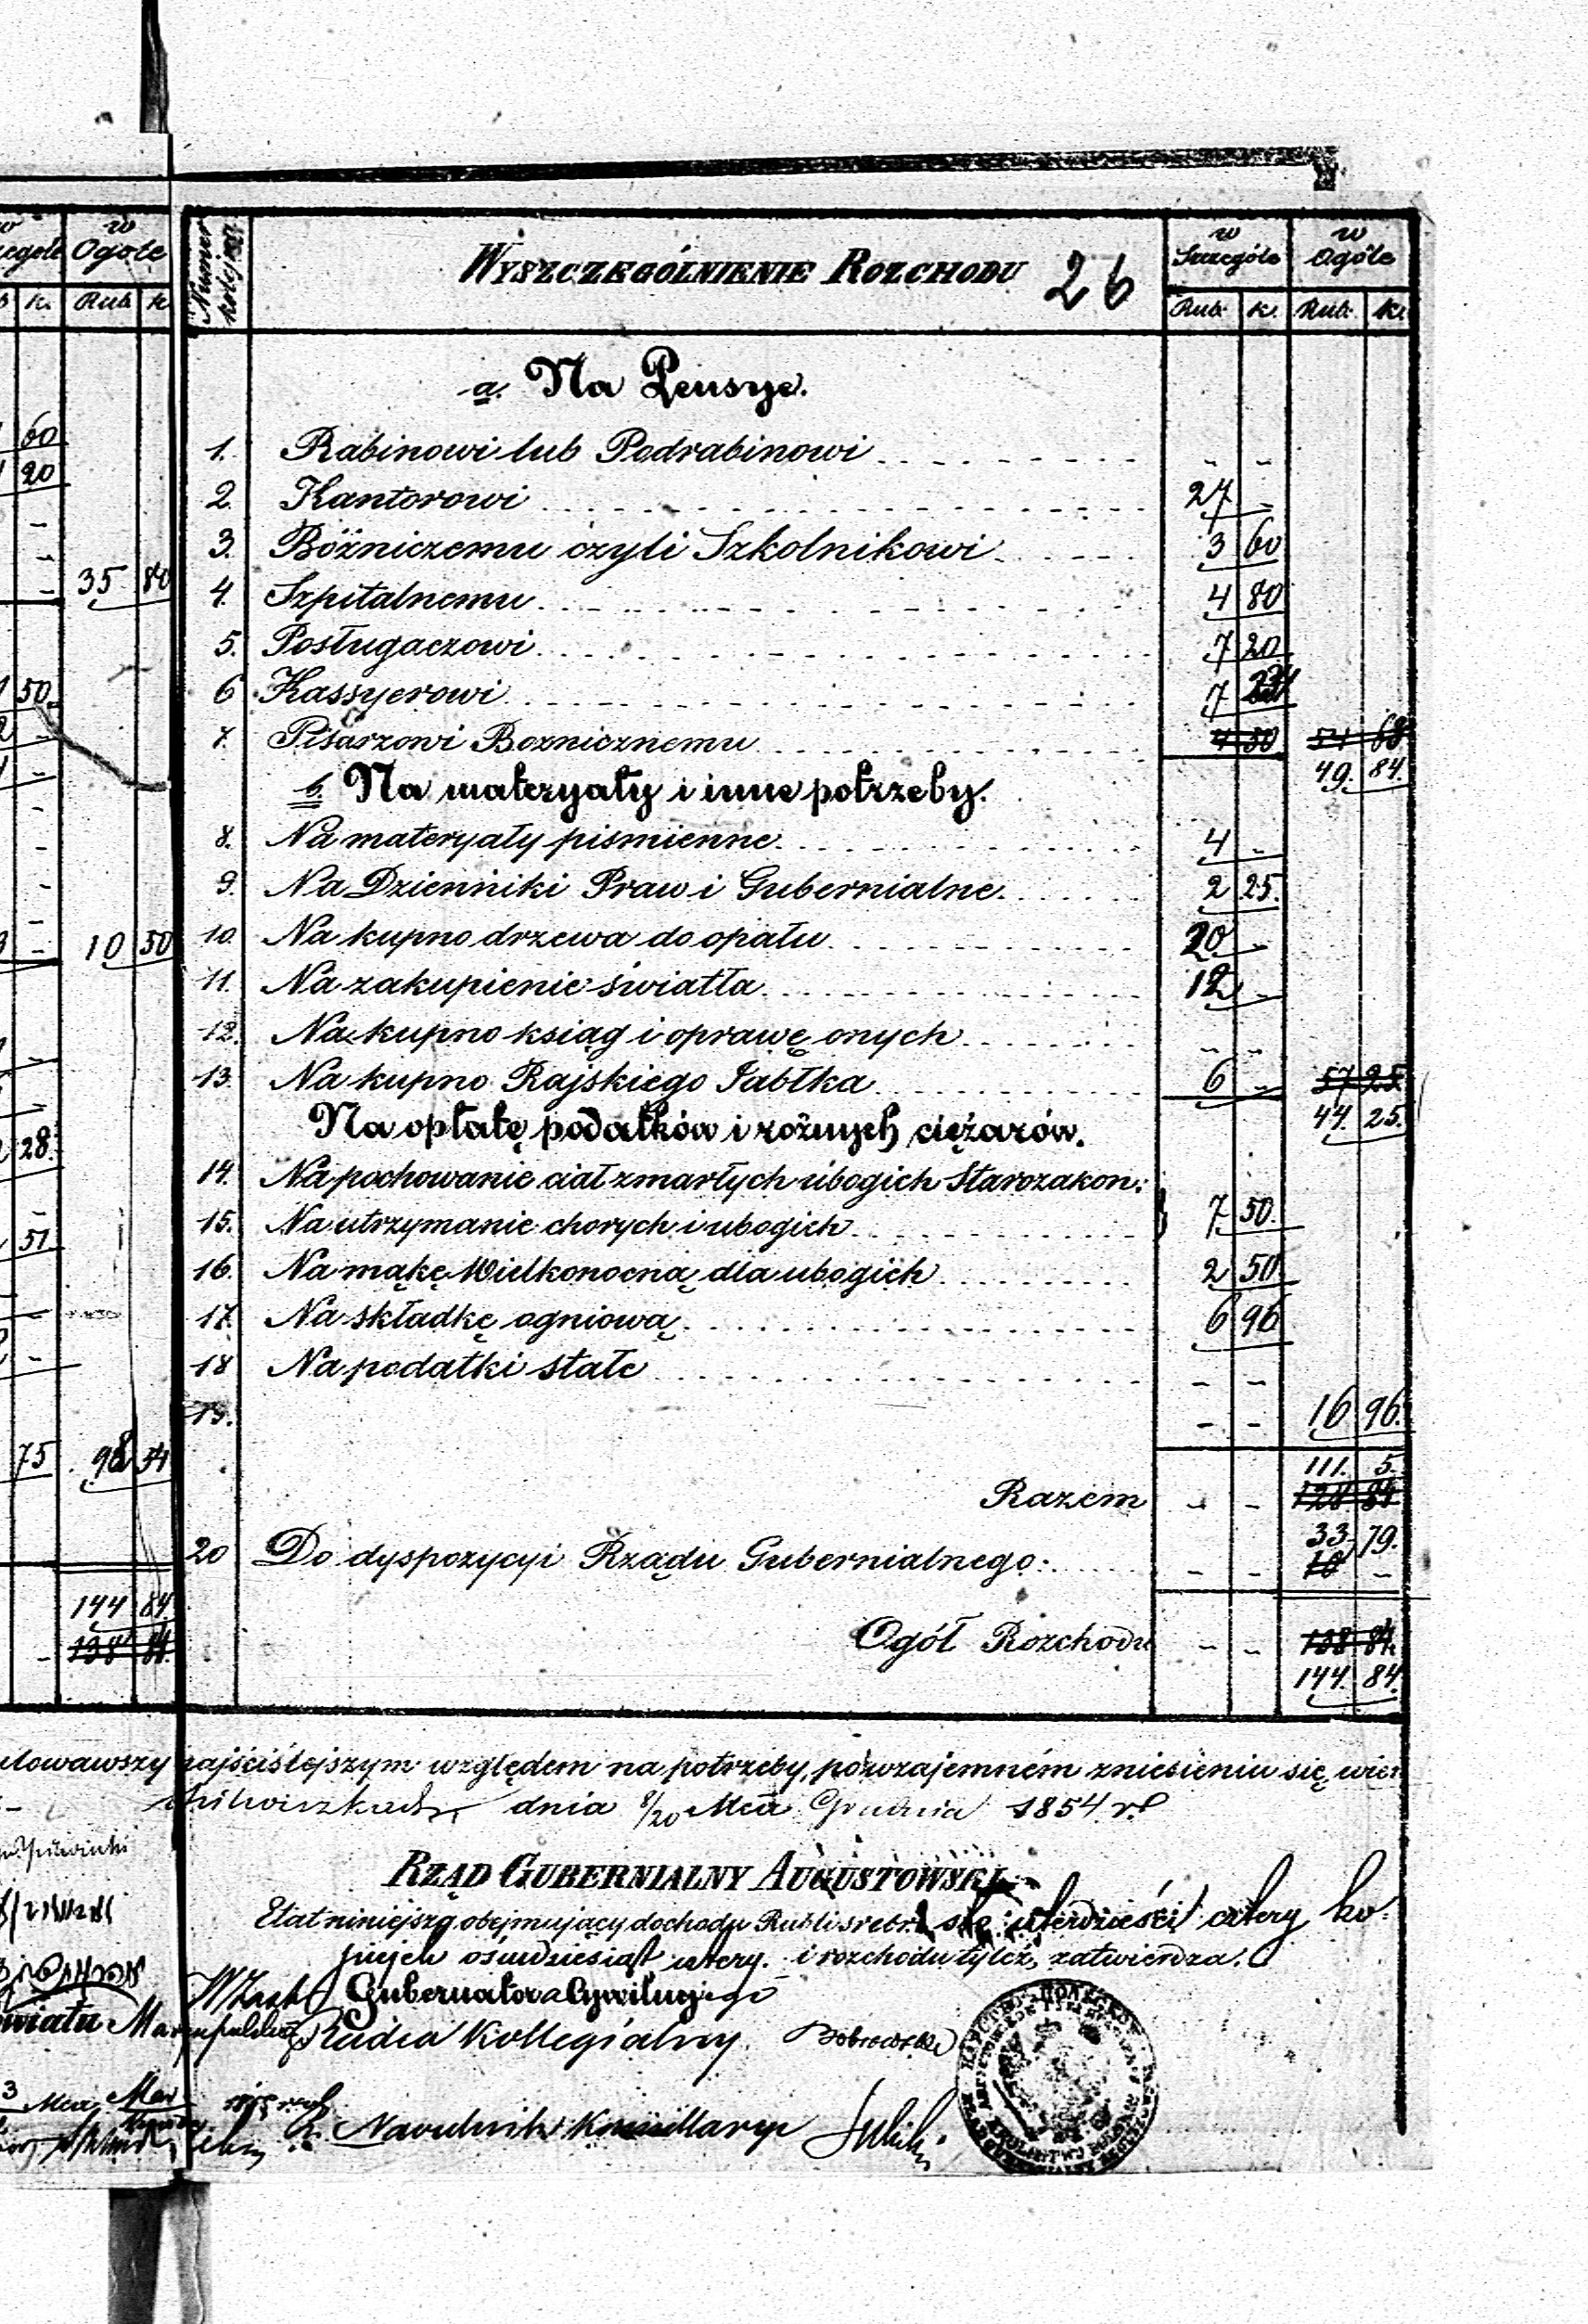 w Ogóle
k. Rub k
Numer kolejny
WYSZCZEGÓLNIENIE ROZCHODU 26
w Szczególe
w Ogóle
Rub. k. Rub. k.
a. Na Pensye.
60
1. Rabinowi lub Podrabinowi - -
20
2. Kantorowi 27 -
3. Bóżniczemu czyli Szkolnikowi 3 60
35 80
4. Szpitalnemu 4 80
5. Posługaczowi 7 20
50
6 Kassyerowi 7
7. Pisarzowi Boznicznemu 4 50 54 68
49. 84.
b. Na materyały i inne potrzeby.
8. Na materyały piśmienne 4 -
9. Na Dzienniki Praw i Gubernialne. 2 25.
10 50
10. Na kupno drzewa do opału 20 -
11. Na zakupienie światła 12 -
12. Na kupno ksiąg i oprawę onych - -
13. Na kupno Rajskiego Jabłka 6 - 57 25
44. 25.
Na opłatę podatków i rożnych ciężarów.
28.
14. Na pochowanie ciał zmarłych ubogich Starozakon:
15. Na utrzymanie chorych i ubogich 7 50.
51
16. Na mąkę Wielkonocną dla ubogich 2 50.
17. Na składkę ogniową 6 96
18 Na podatki stałe - -
19. - - 16 96.
75 98 54
111. 5.
Razem - - 128 84
33. 79.
20 Do dyspozycyi Rządu Gubernialnego: - - 10 -
144 84.
138 84
Ogół Rozchodu - - 138 84.
144. 84.
najściślejszym względem na potrzeby, powzajemném zniesieniu się, wier
dnia 8/20 Mca Grudnia 1854 r.
RZĄD GUBERNIALNY AUGUSTOWSKI
Etat niniejszy obejmujący dochodu Rubli srebr. sto czterdzieści cztery ko-
piejek ośmdziesiąt cztery. i rozchodu tyleż, zatwierdza.
W Zast. Gubernatora Cywilnego
Radca Kollegialny
Naczelnik Kancellaryi